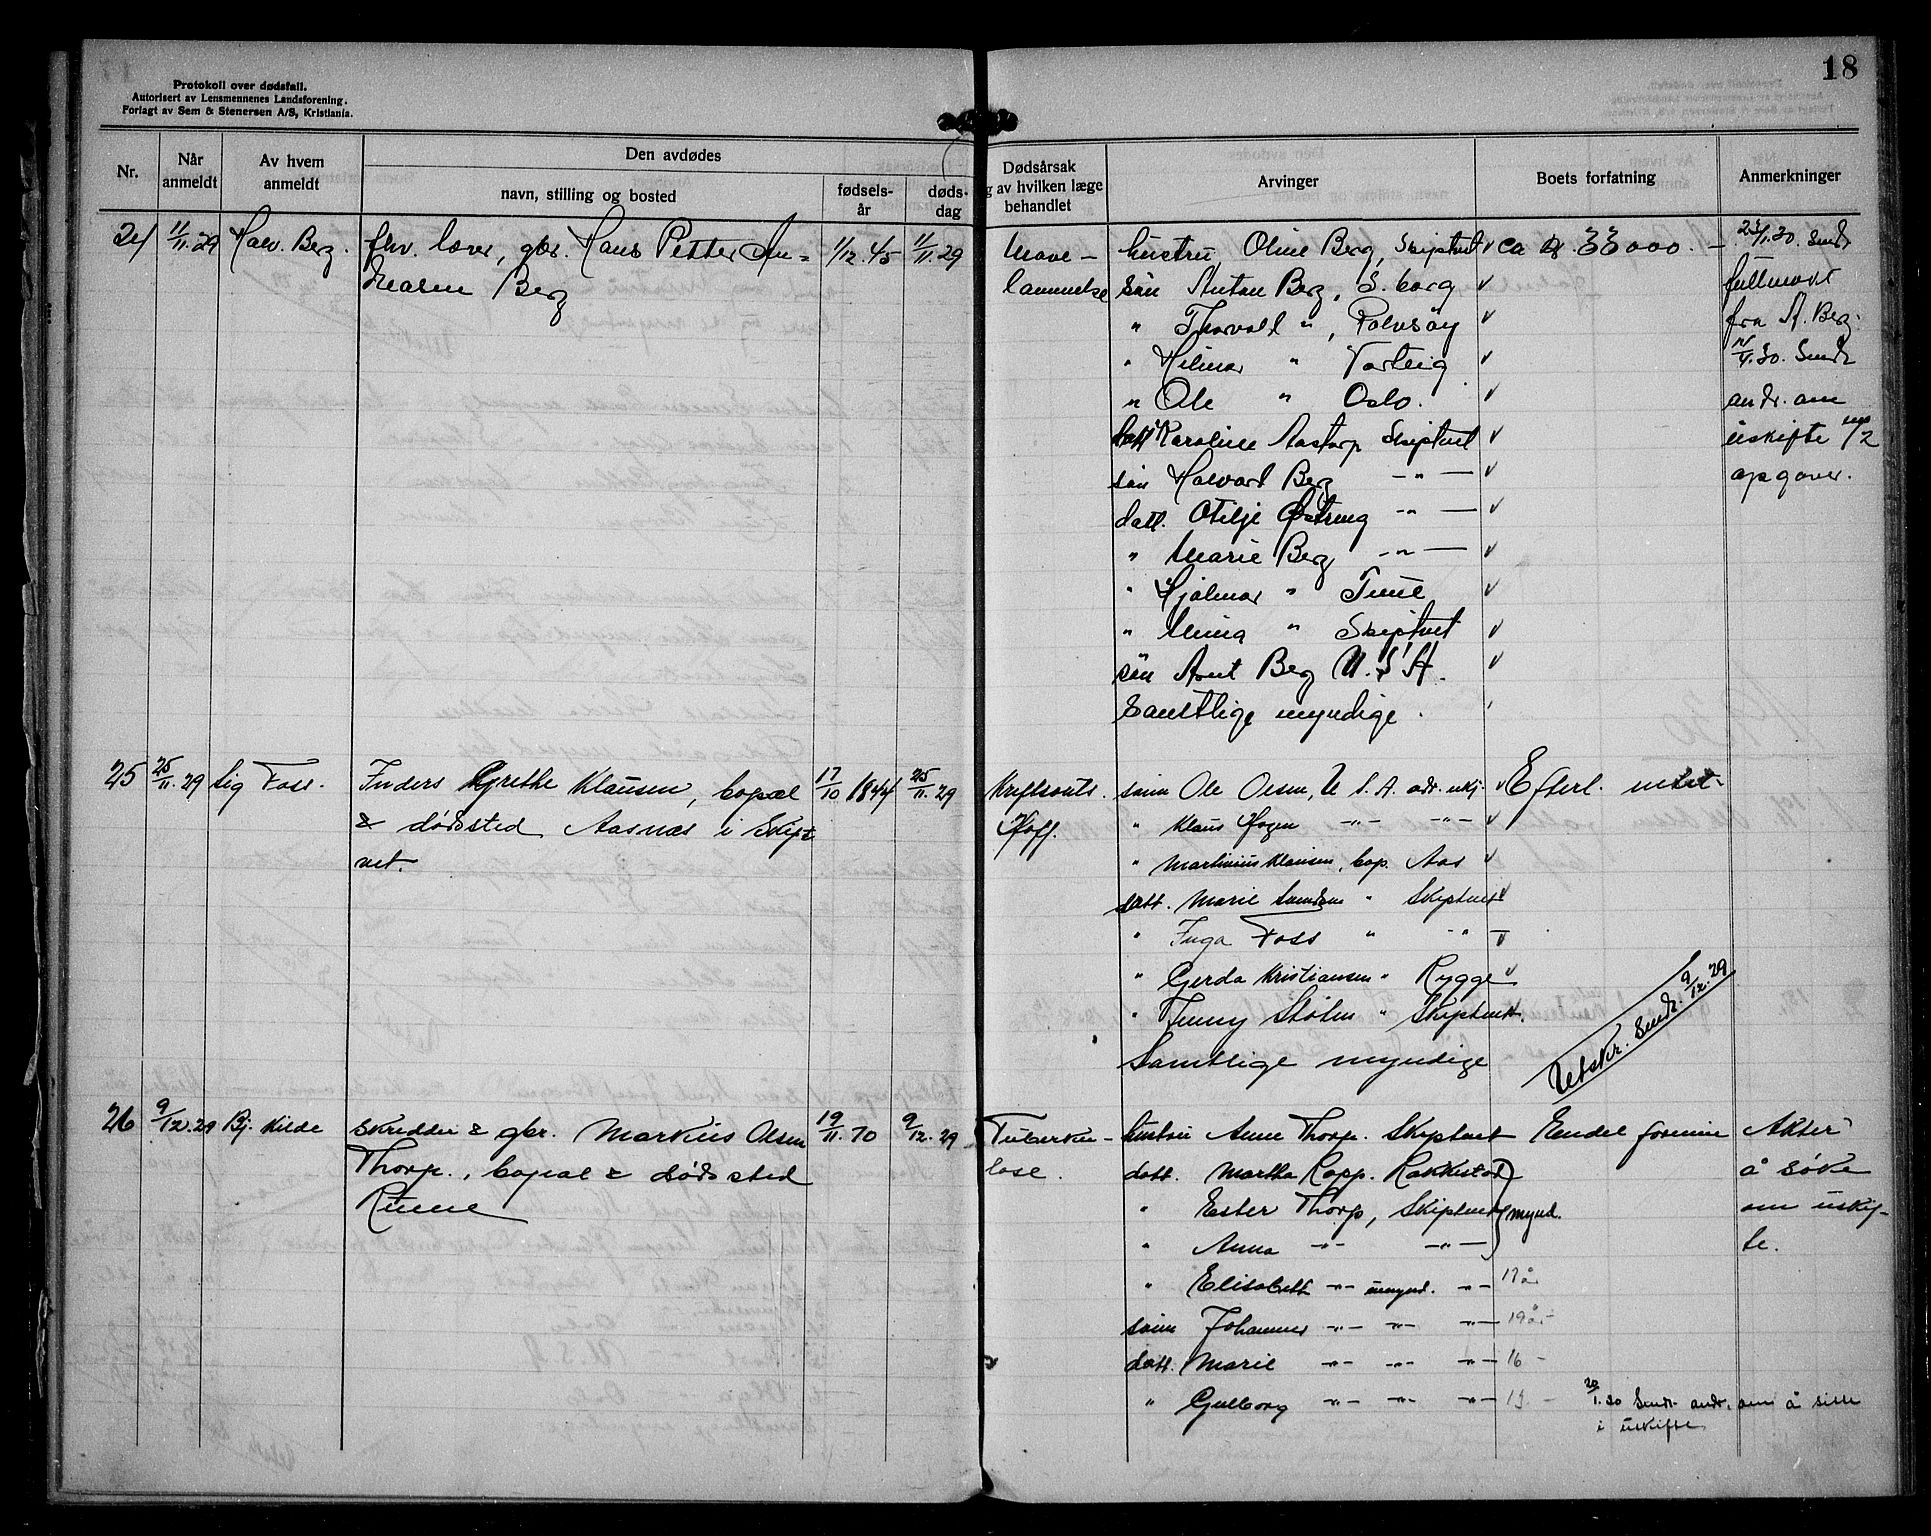 18
Protokoll over dødsfall.
Autorisert av Lensmennenes Landsforening.
Forlagt av Sem & Stenersen A/S, Kristiania.
Nr.
Når anmeldt
Av hvem anmeldt
Den avdødes
navn, stilling og bosted
fødsels-år
døds-dag
Dødsårsak
og av hvilken læge
behandlet
Arvinger
Boets forfatning
Anmerkninger
24 11/11.29 Halv. Berg. fhv. lærer, gbr. Hans Petter An= 1/12.45 11/11.29
dreasen Berg
Mave-
lammelse
hustru Oline Berg, Skiptvet v ca kr 33000.-
søn Anton Berg, S.borg v
" Thorvald ", Rolvsøy v
" Hilmar " Varteig v
" Ole " Oslo. v
datt Karoline Aastorp Skiptvet v
søn Halvard Berg -"- v
datt. Otilje Østreng -"- v
" Marie Berg -"- v
" Hjalmar " Tune v
" Minna " Skiptvet v
søn Arnt Berg U.S.A. v
Samtlige myndige.
23/1.30. Sendt
fullmakt
fra A. Berg.
/1.30. Sendt
andr. om
uskifte m/2
opgaver.
25 25/11.29 Sig Foss. Inders Grethe Klausen, bopæl 17/10 1844 25/11.29
& dødssted Aasnæs i Skipt=
vet.
Kreftsvuls.
Hoff.
sønn Ole Olsen, U.S.A. adr. ukj. v Efterl. intet.
" Klaus Hagen -"- -"- v
" Martinius Klausen, bop. Aas v
datt. Marie Amdsen " Skiptvet v
" Inga Foss " -"- v
" Gerda Kristiansen " Rygge v
" Jenny Stølen " Skiptvet v.
Samtlige myndige
Utskr. Sendt. 9/12.29
26 9/12.29 Bj. Kilde skredder & gbr. Markus Olsen 19/11.70 9/12.29
Thorp., bopæl & dødssted
Runne
Tuberku-
lose.
hustru Anne Thorp. Skiptvet Endel formue
datt. Martha Rapp. Rakkestad
" Ester Thorp, Skiptvet mynd.
" Anna -"- -"-
" Elisabett -"- umynd. -"- 17 år
sønn Johannes -"- -"- -"- 19 år
datt. Marie -"- -"- -"- 16 -
" Gulborg -"- -"- -"- 13 -
Akter
å søke
om uskif-
te.
20/1.30 Sendt andr. om å sitte
i uskifte